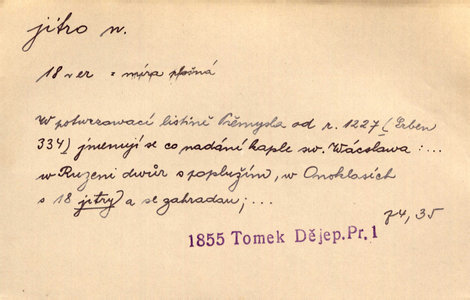 jitro n.
18 v er = míra plošná
W potwrzowací listině Přemysla od r. 1227 (Erben
334) jmenují se co nadání kaple sw. Wácslawa: ...
w Ruzeni dwůr s poplužím, w Onoklasích
s 18 jitry) a se zahradau; ...
74, 35
1855 Tomek Dějep. Pr. 1